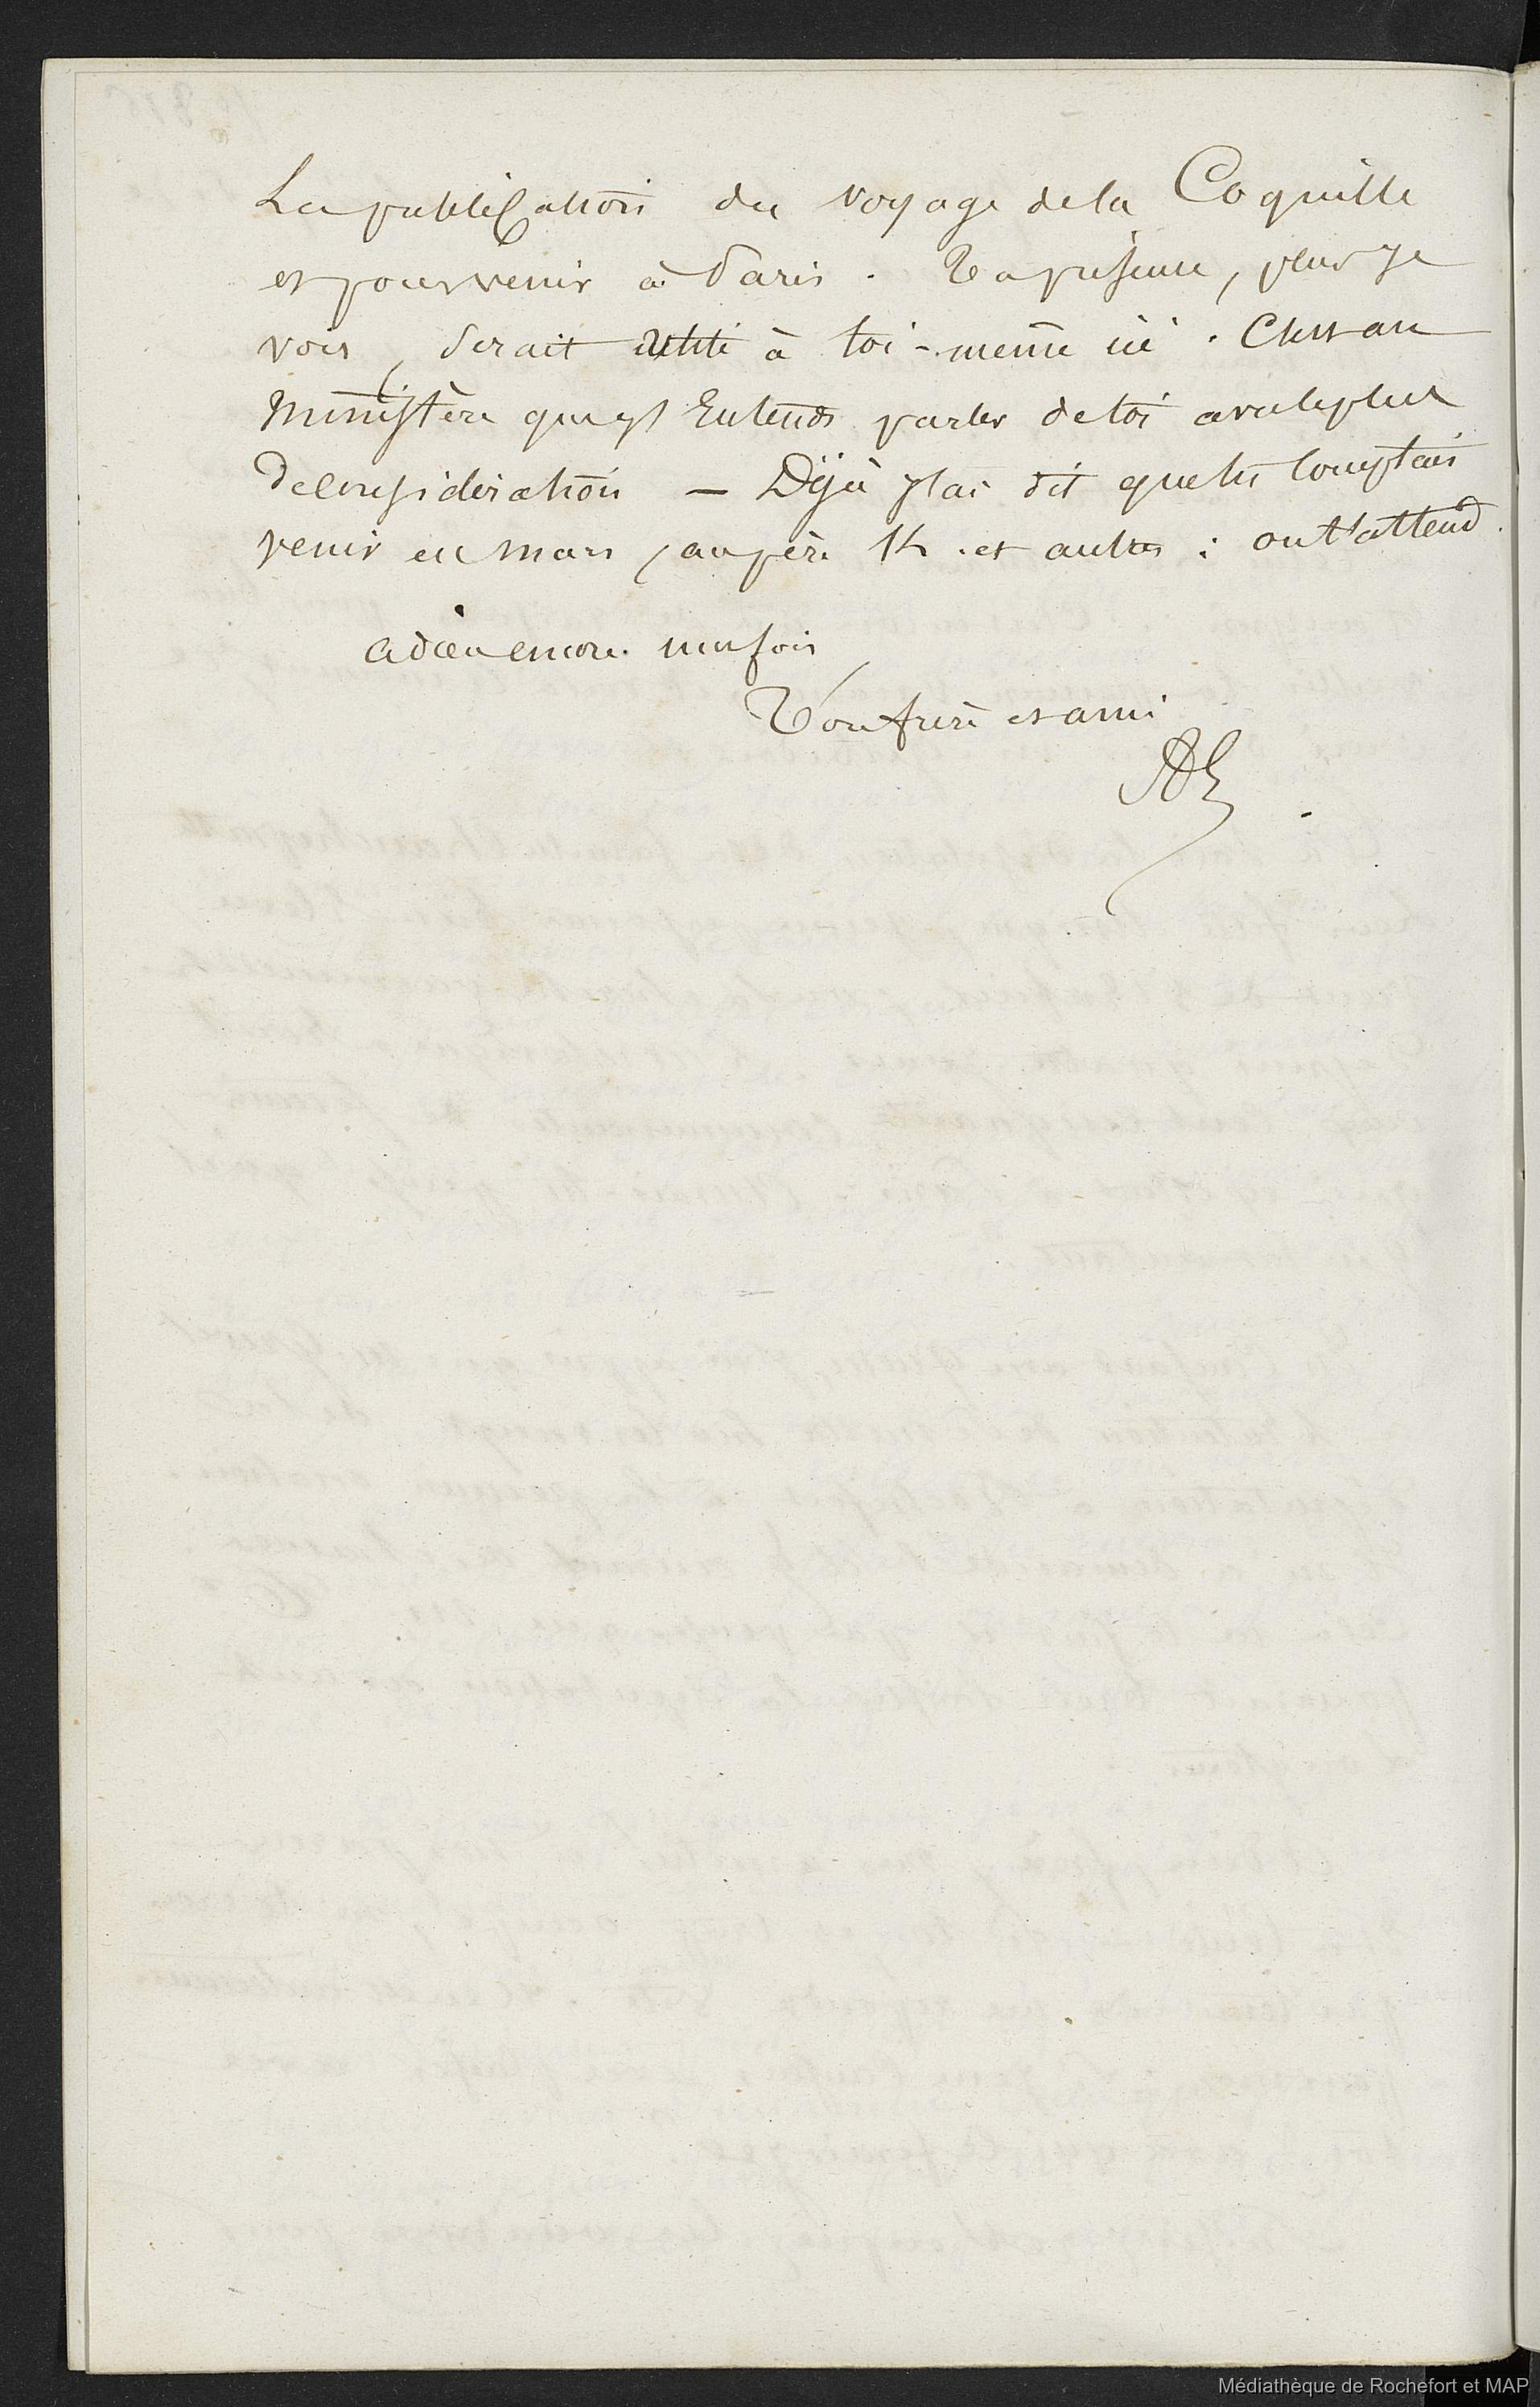 La publication du voyage de la Coquille
et pour venir à Paris. Ta présence, plus je
vois, serait utile à toi-même ici. C'est au
Ministère que j'entends parler de toi avec le plus
de considération — Déjà j'ai dit que tu comptais
venir en mars, au père K. et autres : on t'attend.
adieu encore une fois
Ton frère et ami
Médiathèque de Rochefort et MAP